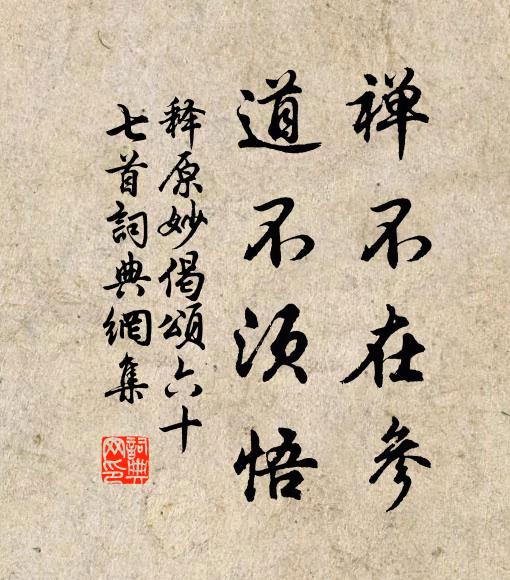 禅不在参
道不须悟
释原妙偈頌六十
七首詞典網集
詞典
网印